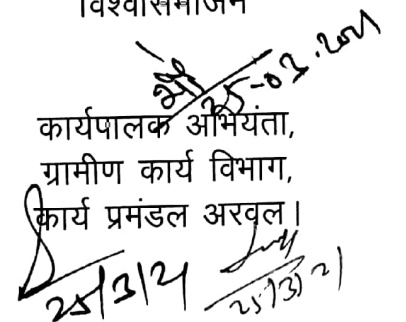 विश्वासभाजन
25-03-2021
कार्यपालक अभियंता,
ग्रामीण कार्य विभाग,
कार्य प्रमंडल अरवल।
25/3/21
25/3/21